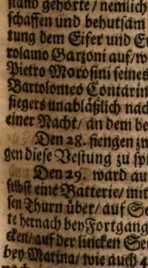 stand gehörte / nemlich
schaffen und behutsam
tung dem Eifer und
rolamo Garzoni auf / w
Pietro Morosini seines
Bartolomeo Contarin
siegers unabläßlich nach
einer Nacht / an dem be
Den 28. fiengen zw
gen diese Vestung zu
Den 29. ward au
selbst eine Batterie / mit
sen Thurn über / auf Se
te hernach bey Fortgang
cken / auf der lincken Se
bey Marina / wie auch 4